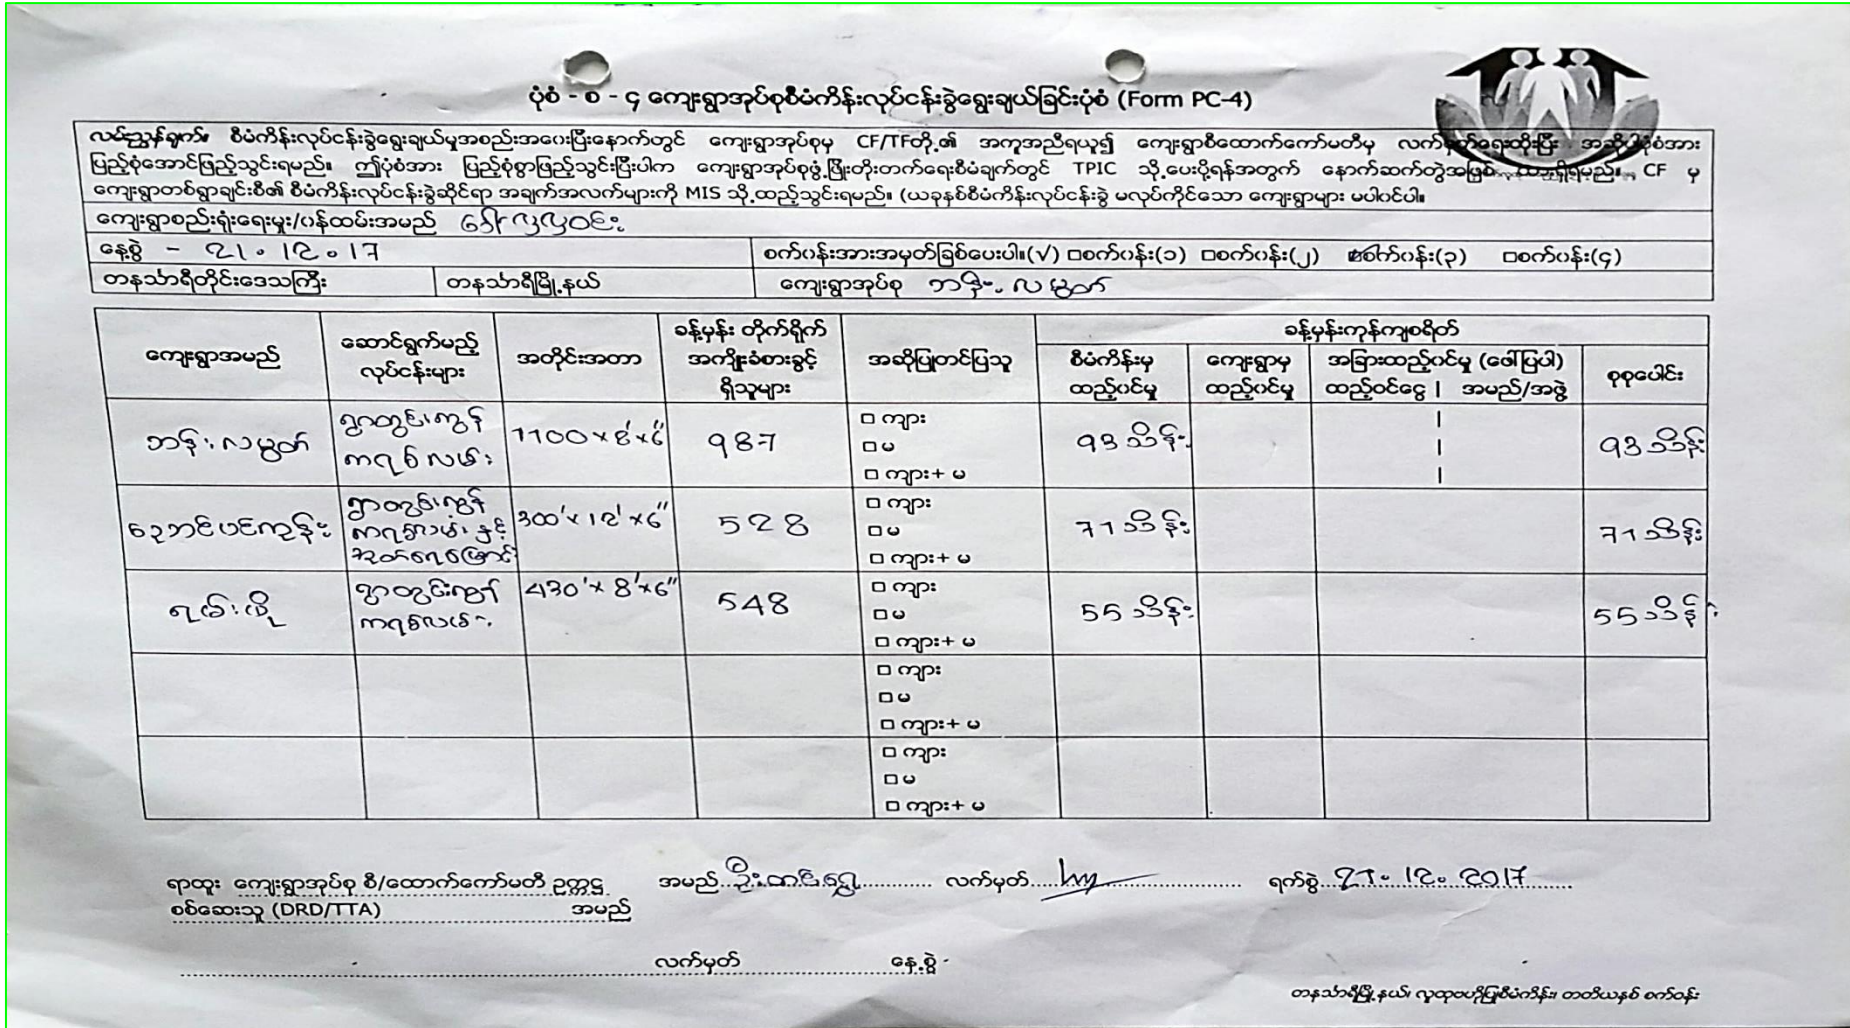 ပုံစံ - စ - ၄ ကျေးရွာအုပ်စုစီမံကိန်းလုပ်ငန်းခွဲရွေးချယ်ခြင်းပုံစံ (Form PC-4)
လမ်းညွှန်ချက်။ စီမံကိန်းလုပ်ငန်းခွဲရွေးချယ်မှုအစည်းအဝေးပြီးနောက်တွင် ကျေးရွာအုပ်စုမှ CF/TFတို့၏ အကူအညီရယူ၍ ကျေးရွာစီထောက်ကော်မတီမှ လက်မှတ်ရေးထိုးပြီး အဆိုပါပုံစံအား
ပြည့်စုံအောင်ဖြည့်သွင်းရမည်။ ဤပုံစံအား ပြည့်စုံစွာဖြည့်သွင်းပြီးပါက ကျေးရွာအုပ်စုဖွံ့ဖြိုးတိုးတက်ရေးစီမံချက်တွင် TPIC သို့ပေးပို့ရန်အတွက် နောက်ဆက်တွဲအဖြစ် ထားရှိရမည်။ CF မှ
ကျေးရွာတစ်ရွာချင်းစီ၏ စီမံကိန်းလုပ်ငန်းခွဲဆိုင်ရာ အချက်အလက်များကို MIS သို့ထည့်သွင်းရမည်။ (ယခုနှစ်စီမံကိန်းလုပ်ငန်းခွဲ မလုပ်ကိုင်သော ကျေးရွာများ မပါဝင်ပါ။
ကျေးရွာစည်းရုံးရေးမှူး/ဝန်ထမ်းအမည် ဒေါ်လှလှဝင်း
နေ့စွဲ - 21.12.17 စက်ဝန်းအားအမှတ်ခြစ်ပေးပါ။(√) □စက်ဝန်း(၁) □စက်ဝန်း(၂) စက်ဝန်း(၃) □စက်ဝန်း(၄)
တနင်္သာရီတိုင်းဒေသကြီး တနင်္သာရီမြို့နယ် ကျေးရွာအုပ်စု ဘန်းလမွတ်
ကျေးရွာအမည် ဆောင်ရွက်မည့် လုပ်ငန်းများ အတိုင်းအတာ ခန့်မှန်း တိုက်ရိုက် အကျိုးခံစားခွင့် ရှိသူများ အဆိုပြုတင်ပြသူ ခန့်မှန်းကုန်ကျစရိတ်
စီမံကိန်းမှ ထည့်ဝင်မှု ကျေးရွာမှ ထည့်ဝင်မှု အခြားထည့်ဝင်မှု (ဖော်ပြပါ) ထည့်ဝင်ငွေ | အမည်/အဖွဲ့ စုစုပေါင်း
ဘန်းလမွတ် ရွာတွင်းကွန်ကရစ်လမ်း 1100 x 8' x 6" 987 □ ကျား □ မ □ ကျား+ မ 93 သိန်း 93 သိန်း
ရွာတွင်းကွန်ကရစ်လမ်းနှင့် 300' x 12' x 6" 528 □ ကျား □ မ □ ကျား+ မ 71 သိန်း 71 သိန်း
ရွာတွင်းကွန်ကရစ်လမ်း 430' x 8' x 6" 548 □ ကျား □ မ □ ကျား+ မ 55 သိန်း 55 သိန်း
□ ကျား □ မ □ ကျား+ မ
□ ကျား □ မ □ ကျား+ မ
ရာထူး ကျေးရွာအုပ်စု စီ/ထောက်ကော်မတီ ဥက္ကဋ္ဌ အမည် ဦးတင်ရွှေ လက်မှတ် ရက်စွဲ 21.12.2017
စစ်ဆေးသူ (DRD/TTA) အမည်
လက်မှတ် နေ့စွဲ
တနင်္သာရီမြို့နယ်၊ လူထုဗဟိုပြုစီမံကိန်း၊ တတိယနှစ် စက်ဝန်း